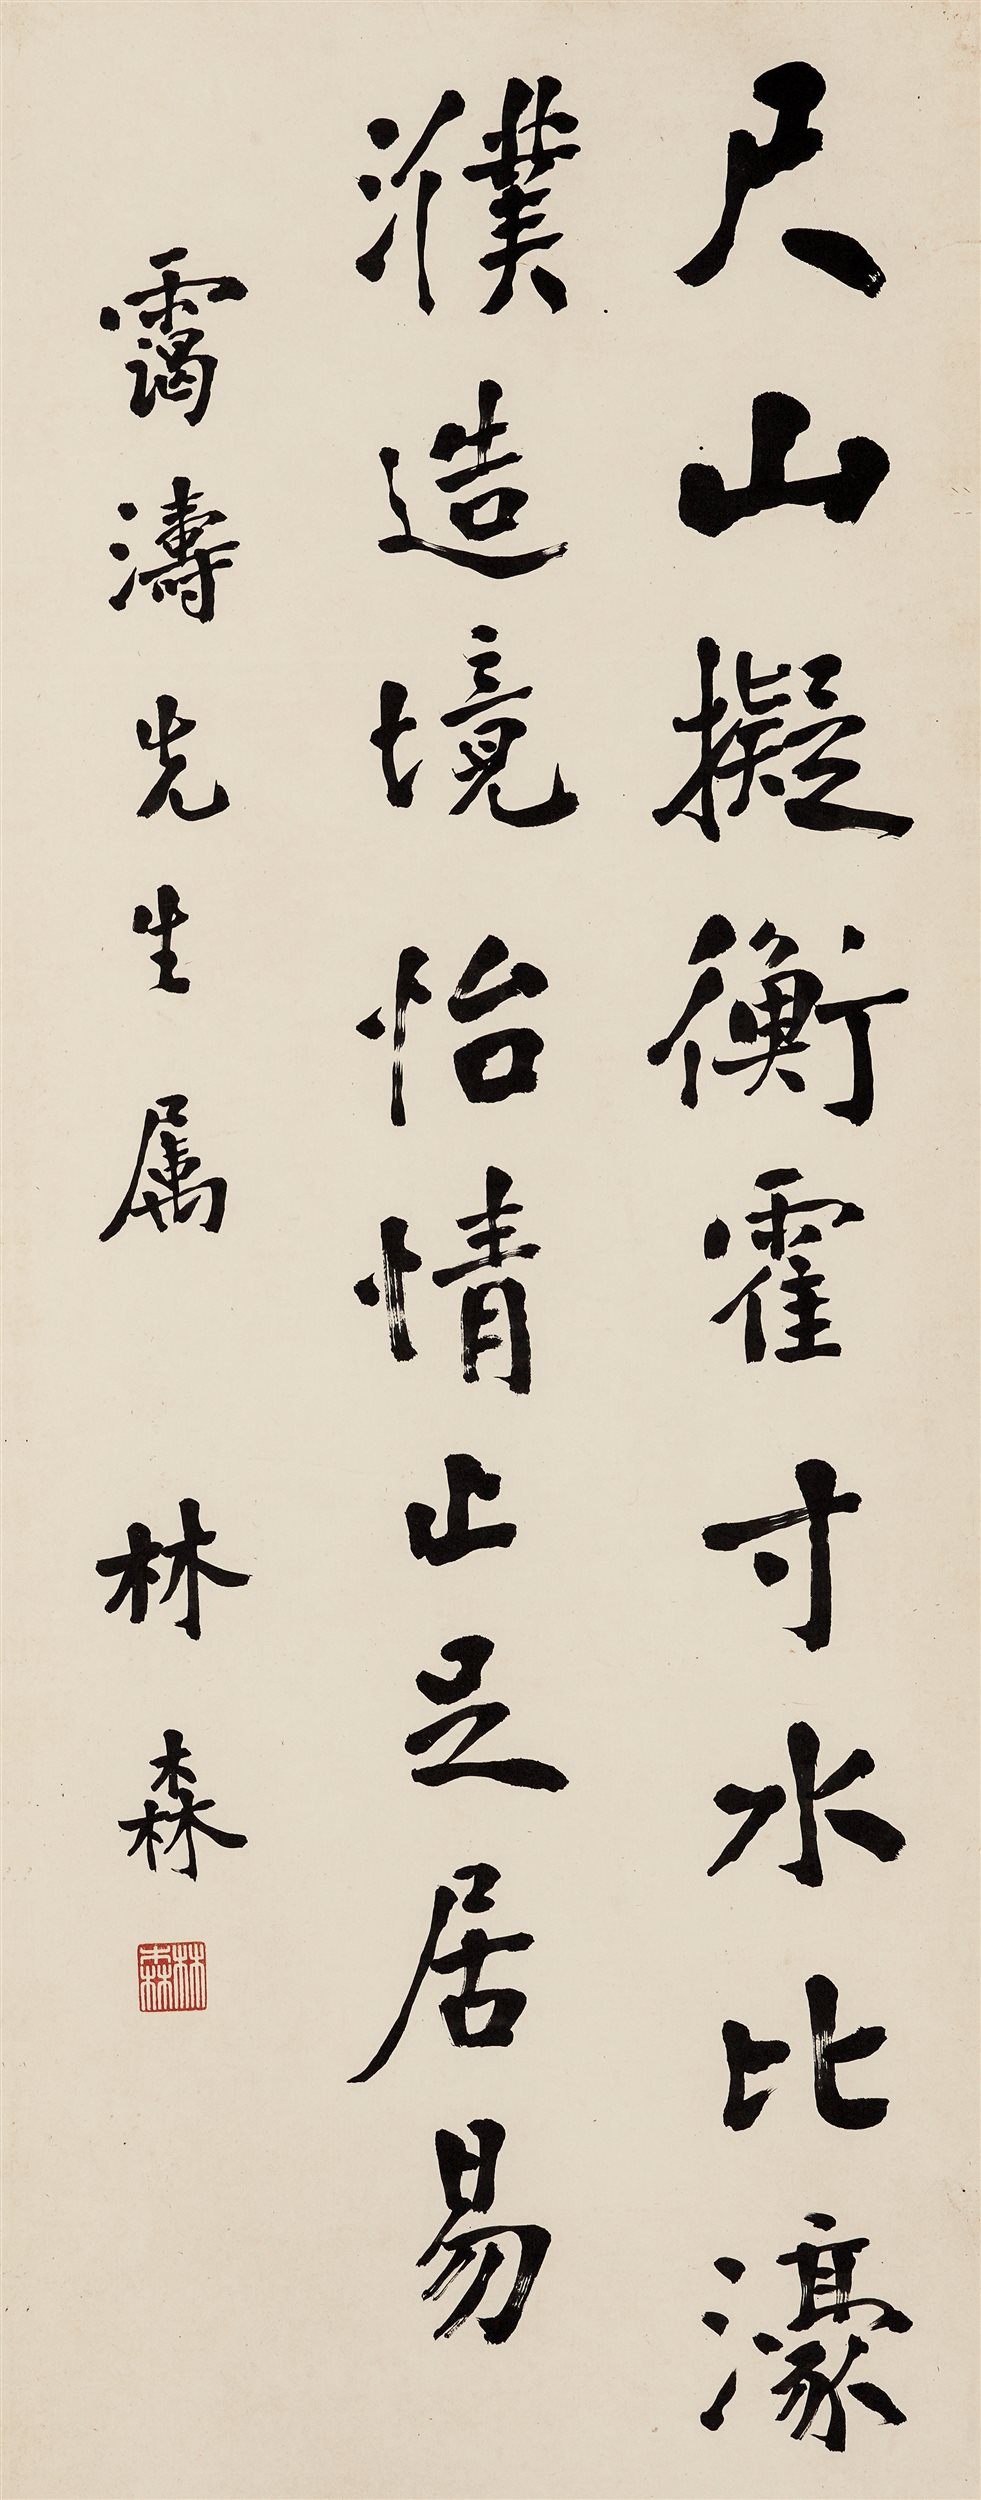 尺山擬衡霍寸水比濠
濮造境怡情止足居易
靄濤先生属 林森
林森